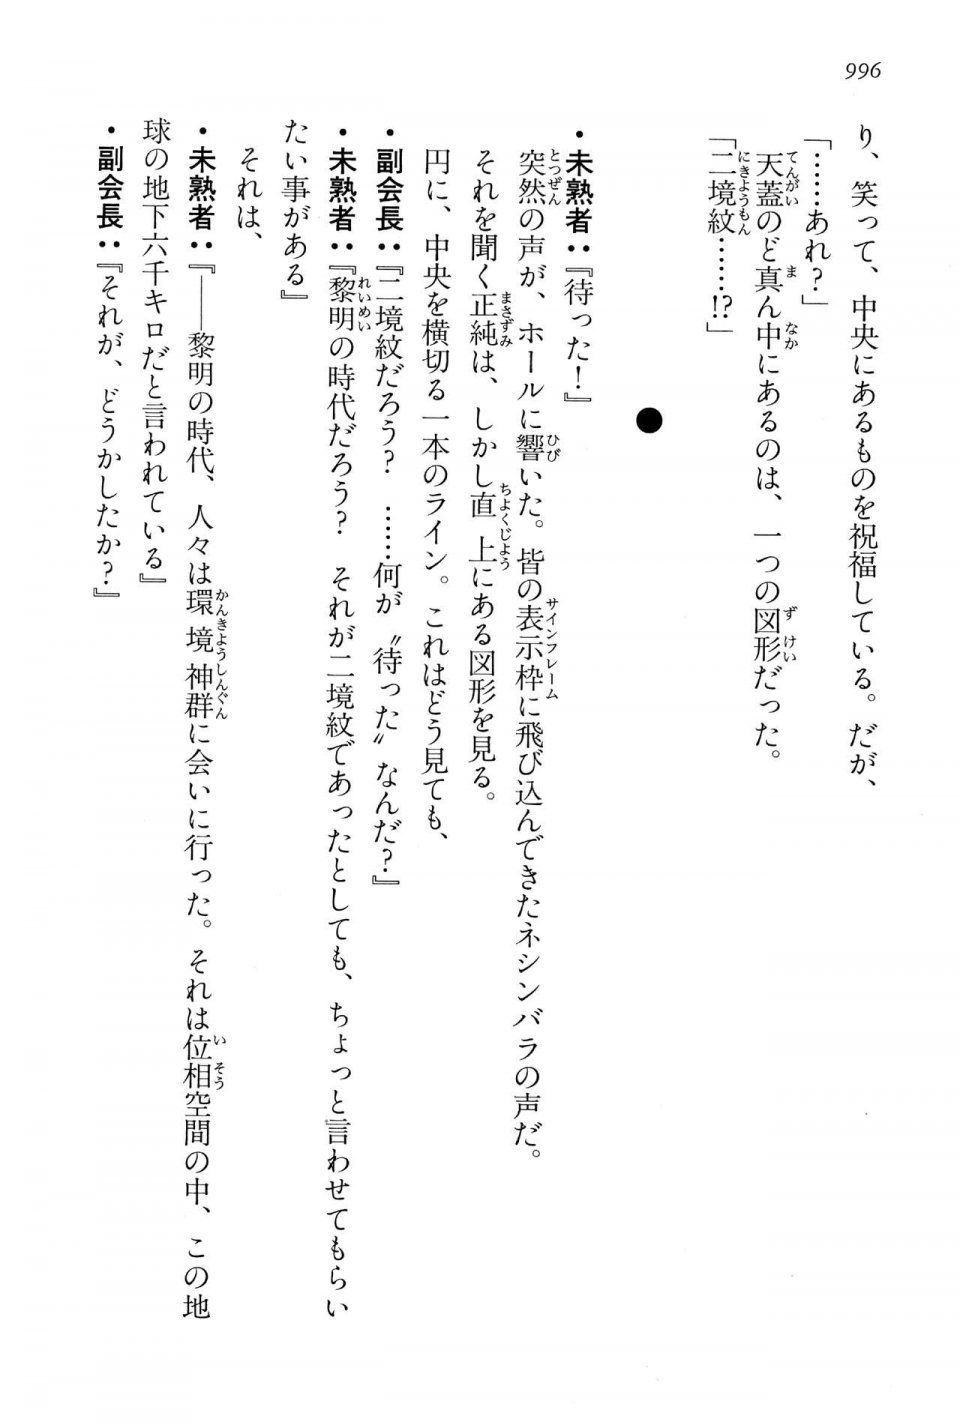 996
り、笑って、中央にあるものを祝福している。だが、
「……あれ？」
天蓋のど真ん中にあるのは、一つの図形だった。
「二境紋……!?」
●
・未熟者：『待った！』
突然の声が、ホールに響いた。皆の表示枠に飛び込んできたネシンバラの声だ。
それを聞く正純は、しかし直上にある図形を見る。
円に、中央を横切る一本のライン。これはどう見ても、
・副会長：『二境紋だろう？　……何が〝待った〟なんだ？』
・未熟者：『黎明の時代だろう？　それが二境紋であったとしても、ちょっと言わせてもらい
たい事がある』
それは、
・未熟者：『――黎明の時代、人々は環境神群に会いに行った。それは位相空間の中、この地
球の地下六千キロだと言われている』
・副会長：『それが、どうかしたか？』